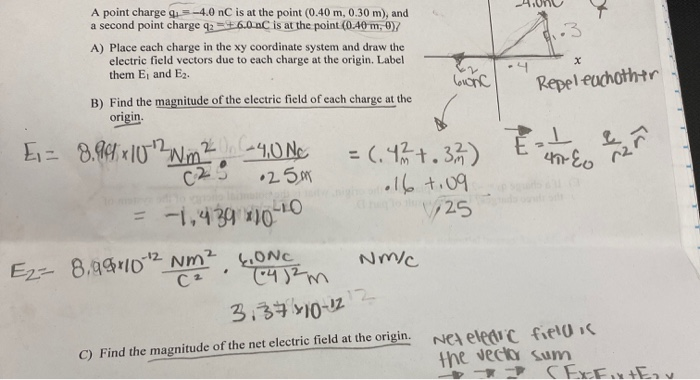 A point charge q₁ = -4.0 nC is at the point (0.40 m, 0.30 m), and
a second point charge q₂ = +6.0 nC is at the point (0.40 m, 0)
-4.0nC
.3
.4
x
6.0nC
Repel eachother
A) Place each charge in the xy coordinate system and draw the
electric field vectors due to each charge at the origin. Label
them E₁ and E₂.
B) Find the magnitude of the electric field of each charge at the
origin.
E₁ = 8.99×10⁻¹² Nm²/C² · -4.0NC/.25m
= (.4²m + .3²m)
.16 + .09
.25
E = 1/4πε₀ q/r² r̂
= -1.439×10⁻¹⁰
E₂ = 8.99×10⁻¹² Nm²/C² · 6.0NC/(.4)²m
Nm/c
3.37×10⁻¹²
C) Find the magnitude of the net electric field at the origin.
Net electric field is
the vector sum
Ex=E₁x+E₂x